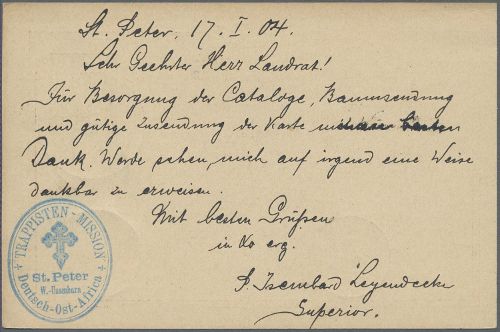 St. Peter, 17. I. 04.
Sehr Geehrter Herr Landrat!
Für Besorgung der Cataloge, Baumsendung
und gütige Zusendung der Karte besten
Dank. Werde sehen, mich auf irgend eine Weise
dankbar zu erweisen.
Mit besten Grüßen
in Xo erg.
P. Isembard Leyendecker
Superior.
TRAPPISTEN-MISSION
St. Peter
W.-Usambara
Deutsch-Ost-Africa